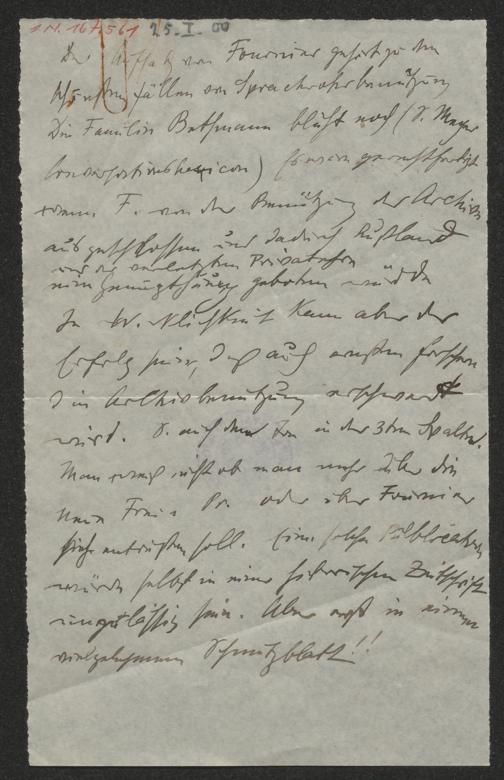 I.N. 167.561 25.I.00
Der Aufsatz von Fournier gehört zu den
schönsten Fällen von Sprachrohrbenützung
Die Familie Bethmann blüht noch (S. Meyer
Conversationslexicon) Es wäre gerechtfertigt
wenn F. von der Benützung der Archive
ausgeschlossen und dadurch Rußland
und den verletzten Privaten
eine Genugthuung geboten würde
In Wirklichkeit kann aber der
Erfolg sein, daß auch ernsten Forschern
die Archivbenützung erschwert
wird. S. auch den in der 3ten Spalte.
Man weiß nicht ob man mehr über die
Neue Freie Pr. oder über Fournier
sich entrüsten soll. Eine solche Publication
würde selbst in einer historischen Zeitschrift
unzulässig sein. Aber erst in einem
vielgelesenen Schmutzblatt!!